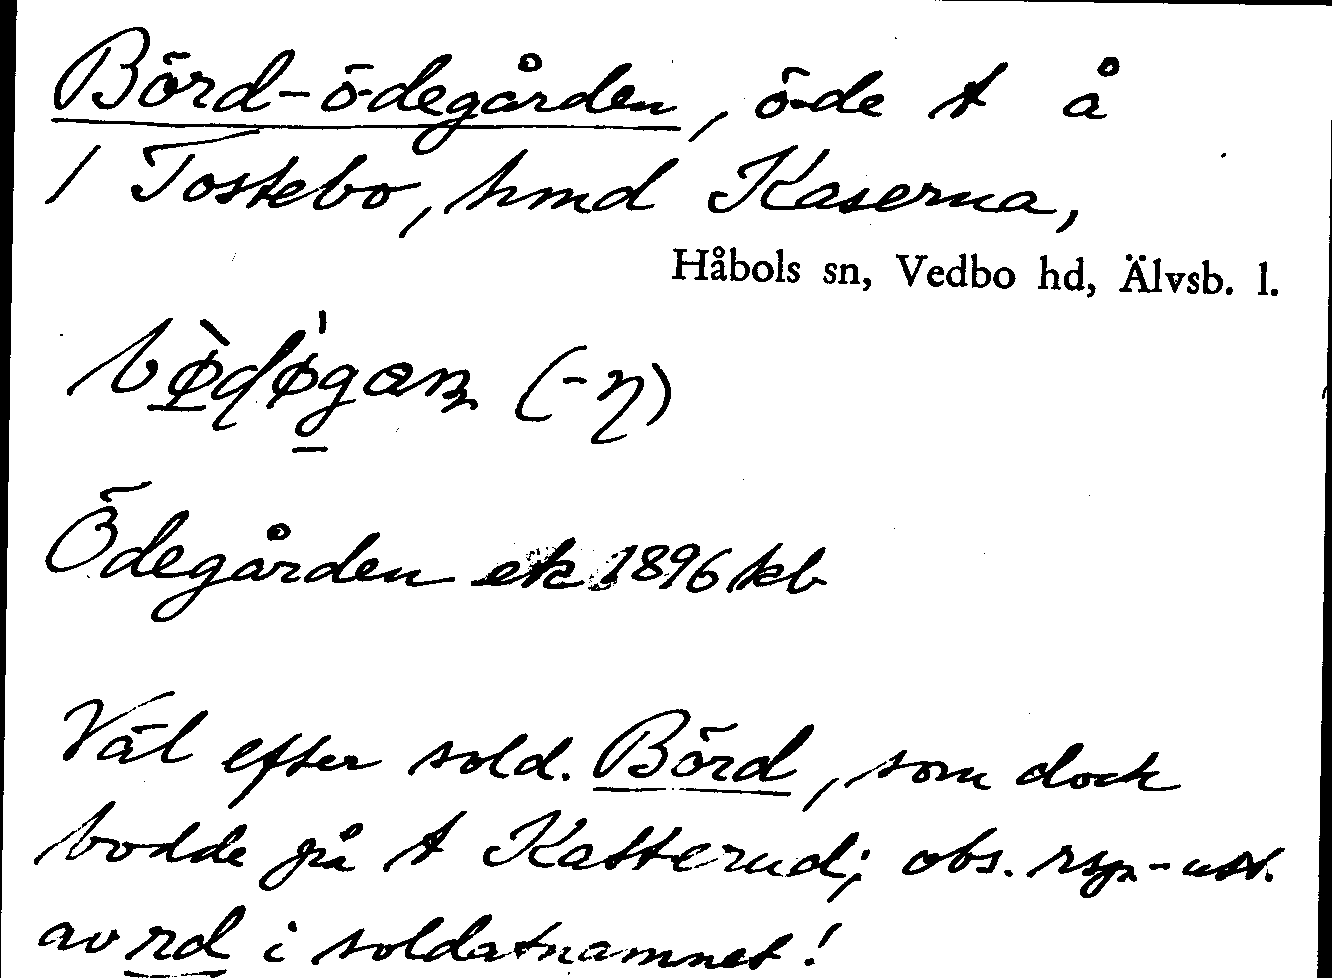 Börd-ödegården, öde t å
1 Tostebo, hmd Kaserna,
Håbols sn, Vedbo hd, Älvsb. l.
Ödegården ek 1896 kb
Väl efter sold. Börd, som dock
bodde på t Katterud; obs. rspr-utt.
av rd i soldatnamnet!